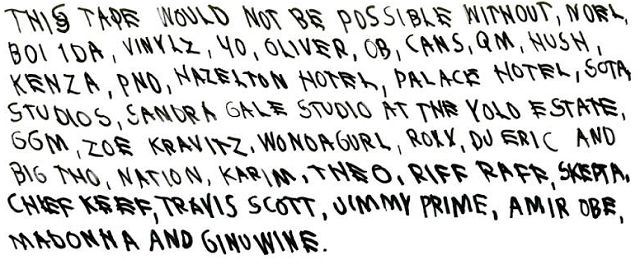 THIS TAPE WOULD NOT BE POSSIBLE WITHOUT, NOEL,
BOI 1DA, VINYLZ, 40, OLIVER, OB, CANS, QM, HUSH,
KENZA, PND, HAZELTON HOTEL, PALACE HOTEL, SOTA,
STUDIOS, SANDRA GALE STUDIO AT THE YOLO ESTATE,
GGM, ZOE KRAVITZ, WONDAGURL, ROXX, DJ ERIC AND
BIG THO, NATION, KARIM, THEO, RIFF RAFF, SKEPTA,
CHIEF KEEF, TRAVIS SCOTT, JIMMY PRIME, AMIR OBE,
MADONNA AND GINUWINE.